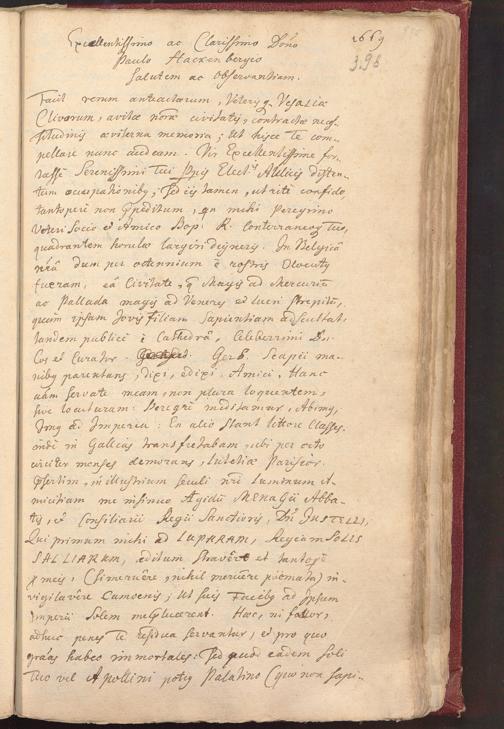 Excellentissimo ac Clarissimo Dn̄o
1669
Paulo Hackenbergio
3.98
Salutem ac observantiam.
Facit rerum anteactarum, Veterisq Vesaliæ
Clivorum, avitæ notæ civitatis, contractæ
æviterna memoria; ut hisce te com-
pellare nunc audeam. Vir Excellentissime
Serenissimi tui Electis disten-
tum occupationibq; Sed iis tamen, ut rite confido
tantopere non , qn mihi peregrino
Veteri Socio et Amico conterraneoq tuo,
quadrantem horulæ largiri digneris. In Belgicâ
nrâ dum per octennium è rostris Docentq
fueram, eâ Civitate, q Magis ad Mercurij
ac Pallada magis ad Veneris et lucri strepitū,
quam ipsam Jovis filiam Sapientiam adscultat,
tandem publicè è Cathedrâ, Celeberrimi
et Curator Gerb. Scapii ma-
nibq parentans, dixi, edixi. Amici, Hanc
servate meam, non plura loquentem,
sive locuturam: Peregrè meditamur, Abimq,
Imq ad Imperia: En alto stant littore classes.
indè in Gallias transfretabam, ubi per octo
circiter menses demorans, Lutetiæ Parisior.
in illustrium seculi nri Luminum A-
micitiam me insinuo Ægidii MENAGII Abba-
tis, et Consiliarii Regii Sanctioris, Dn̄i JUSTELLI,
Qui primum mihi ad LUPARAM, Regiam SOLIS
GALLIARUM, aditum stravêre et
meis, (si meruêre, nihil meruêre poëmata) in-
vigilavêre Camoenis; ut suis Facibq ad ipsum
Imperii Solem Hæc, ni fallor,
adhuc penes te residua servantur, et pro quo
gras habeo immortales: Sed quod eadem soli
tuo vel Apollini potiq Palatino (quo non sapi-